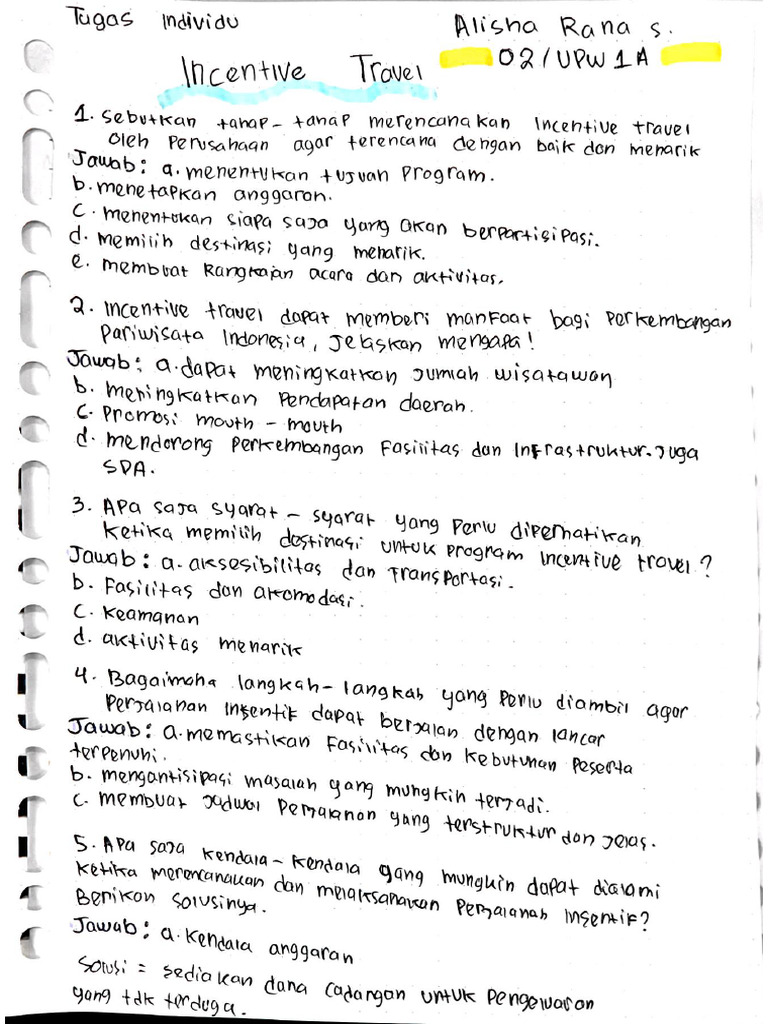 Tugas Individu
Alisha Rana S.
02/UPW 1A
Incentive Travel
1. Sebutkan tahap-tahap merencanakan Incentive travel
oleh Perusahaan agar terencana dengan baik dan menarik
Jawab : a. menentukan tujuan Program.
b. menetapkan anggaran.
c. menentukan siapa saja yang akan berpartisipasi.
d. memilih destinasi yang menarik.
e. membuat Rangkaian acara dan aktivitas.
2. Incentive travel dapat memberi manfaat bagi Perkembangan
Pariwisata Indonesia, Jelaskan mengapa!
Jawab : a. dapat meningkatkan Jumlah wisatawan
b. meningkatkan Pendapatan daerah.
c. Promosi mouth - mouth
d. mendorong Perkembangan Fasilitas dan Infrastruktur. Juga
SDA.
3. Apa saja syarat - syarat yang Perlu diperhatikan
ketika memilih destinasi untuk program Incentive travel?
Jawab : a. aksesibilitas dan Transportasi.
b. Fasilitas dan akomodasi.
c. Keamanan
d. aktivitas menarik
4. Bagaimana langkah-langkah yang Perlu diambil agar
Perjalanan Insentif dapat berjalan dengan lancar
Jawab : a. memastikan Fasilitas dan Kebutuhan Peserta
terpenuhi.
b. mengantisipasi masalah yang mungkin terjadi.
c. membuat Jadwal Perjalanan yang terstruktur dan Jelas.
5. Apa saja kendala-kendala yang mungkin dapat dialami
ketika merencanakan dan melaksanakan Perjalanan Insentif?
Berikan Solusinya.
Jawab : a. Kendala anggaran
Solusi = sediakan dana cadangan untuk Pengeluaran
yang tdk terduga.